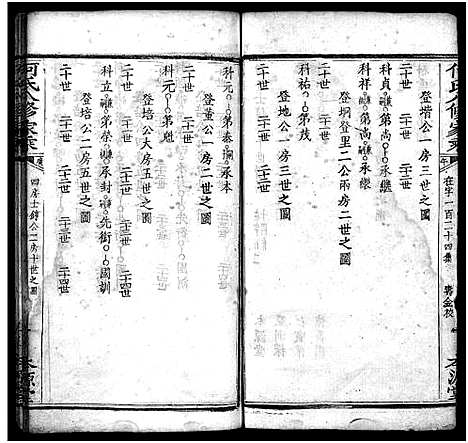 登楷公一房三世之圖
二十世　二十一世　二十二世
科貞　第尚　承繼
科祥　第尚　承繼
登坰登里二公兩房二世之圖
二十世　二十一世
科祐　第茂
在字一百二十四號
本源堂
何氏　修家乘
二十世　二十一世　二十二世
科元　第泰　承本
登董公一房二世之圖
二十世　二十一世
科元　第魁
登培公大房五世之圖
二十世　二十一世　二十二世　二十三世　二十四世
科立　第榮　承封　先衔　國訓
登培公二房五世之圖
二十世　二十一世　二十二世　二十三世　二十四世
四房士錦公二房十世之圖